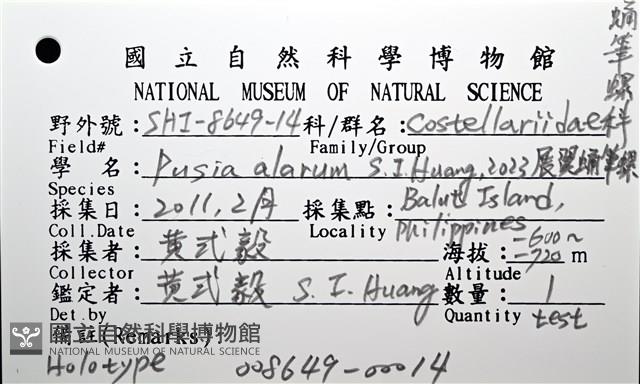 國立自然科學博物館
NATIONAL MUSEUM OF NATURAL SCIENCE
野外號：SHI-8649-14 科/群名：Costellariidae科
蛹筆螺
Field# Family/Group
學 名：Pusia alarum S.I.Huang, 2023 展翼蛹筆螺
Species
採集日：2011, 2月 採集點：Balut Island, Philippines
Coll.Date Locality
採集者：黃式毅 海拔：-600~-720 m
Collector Altitude
鑑定者：黃式毅 S. I. Huang 數量：1
Det.by Quantity test
備註(Remarks)
國立自然科學博物館
NATIONAL MUSEUM OF NATURAL SCIENCE
Holotype 008649-00014